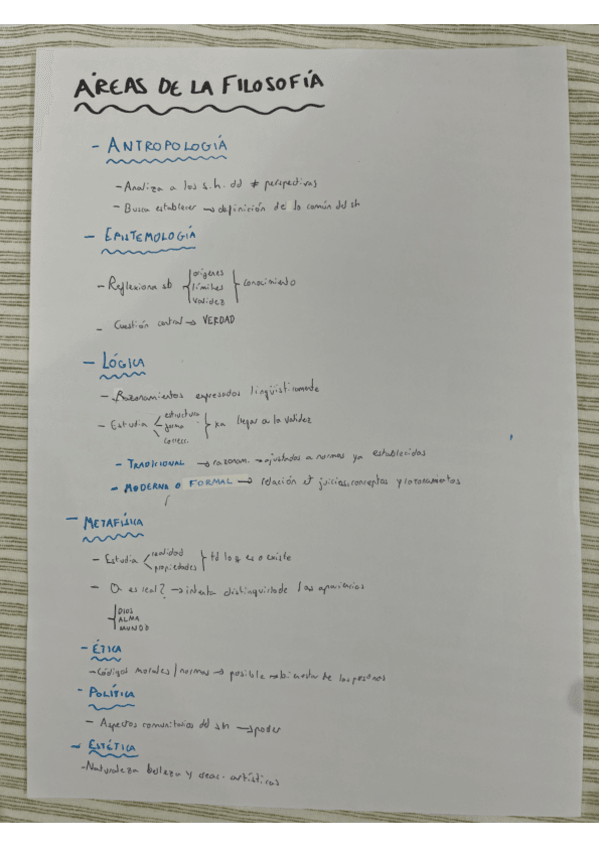 ÁREAS DE LA FILOSOFÍA
- ANTROPOLOGÍA
- Analiza a los s.h. dd ≠ perspectivas
- Busca establecer → definición de lo común del sh
- EPISTEMOLOGÍA
- Reflexiona sb { orígenes límites validez } conocimiento
- Cuestión central → VERDAD
- LÓGICA
- Razonamientos expresados lingüísticamente
- Estudia < estructura forma correcc. } xa llegar a la validez
- TRADICIONAL → razonam. → ajustados a normas ya establecidas
- MODERNA o FORMAL → relación et juicios, conceptos y razonamientos
- METAFÍSICA
- Estudia < realidad propiedades } td lo q es o existe
- Q es real? → intenta distinguirlo de las apariencias
{ DIOS
ALMA
MUNDO
- ÉTICA
- Códigos morales / normas → posible → bienestar de las personas
- POLÍTICA
- Aspectos comunitarios del sh → poder
- ESTÉTICA
- Naturaleza belleza y creac. artísticas